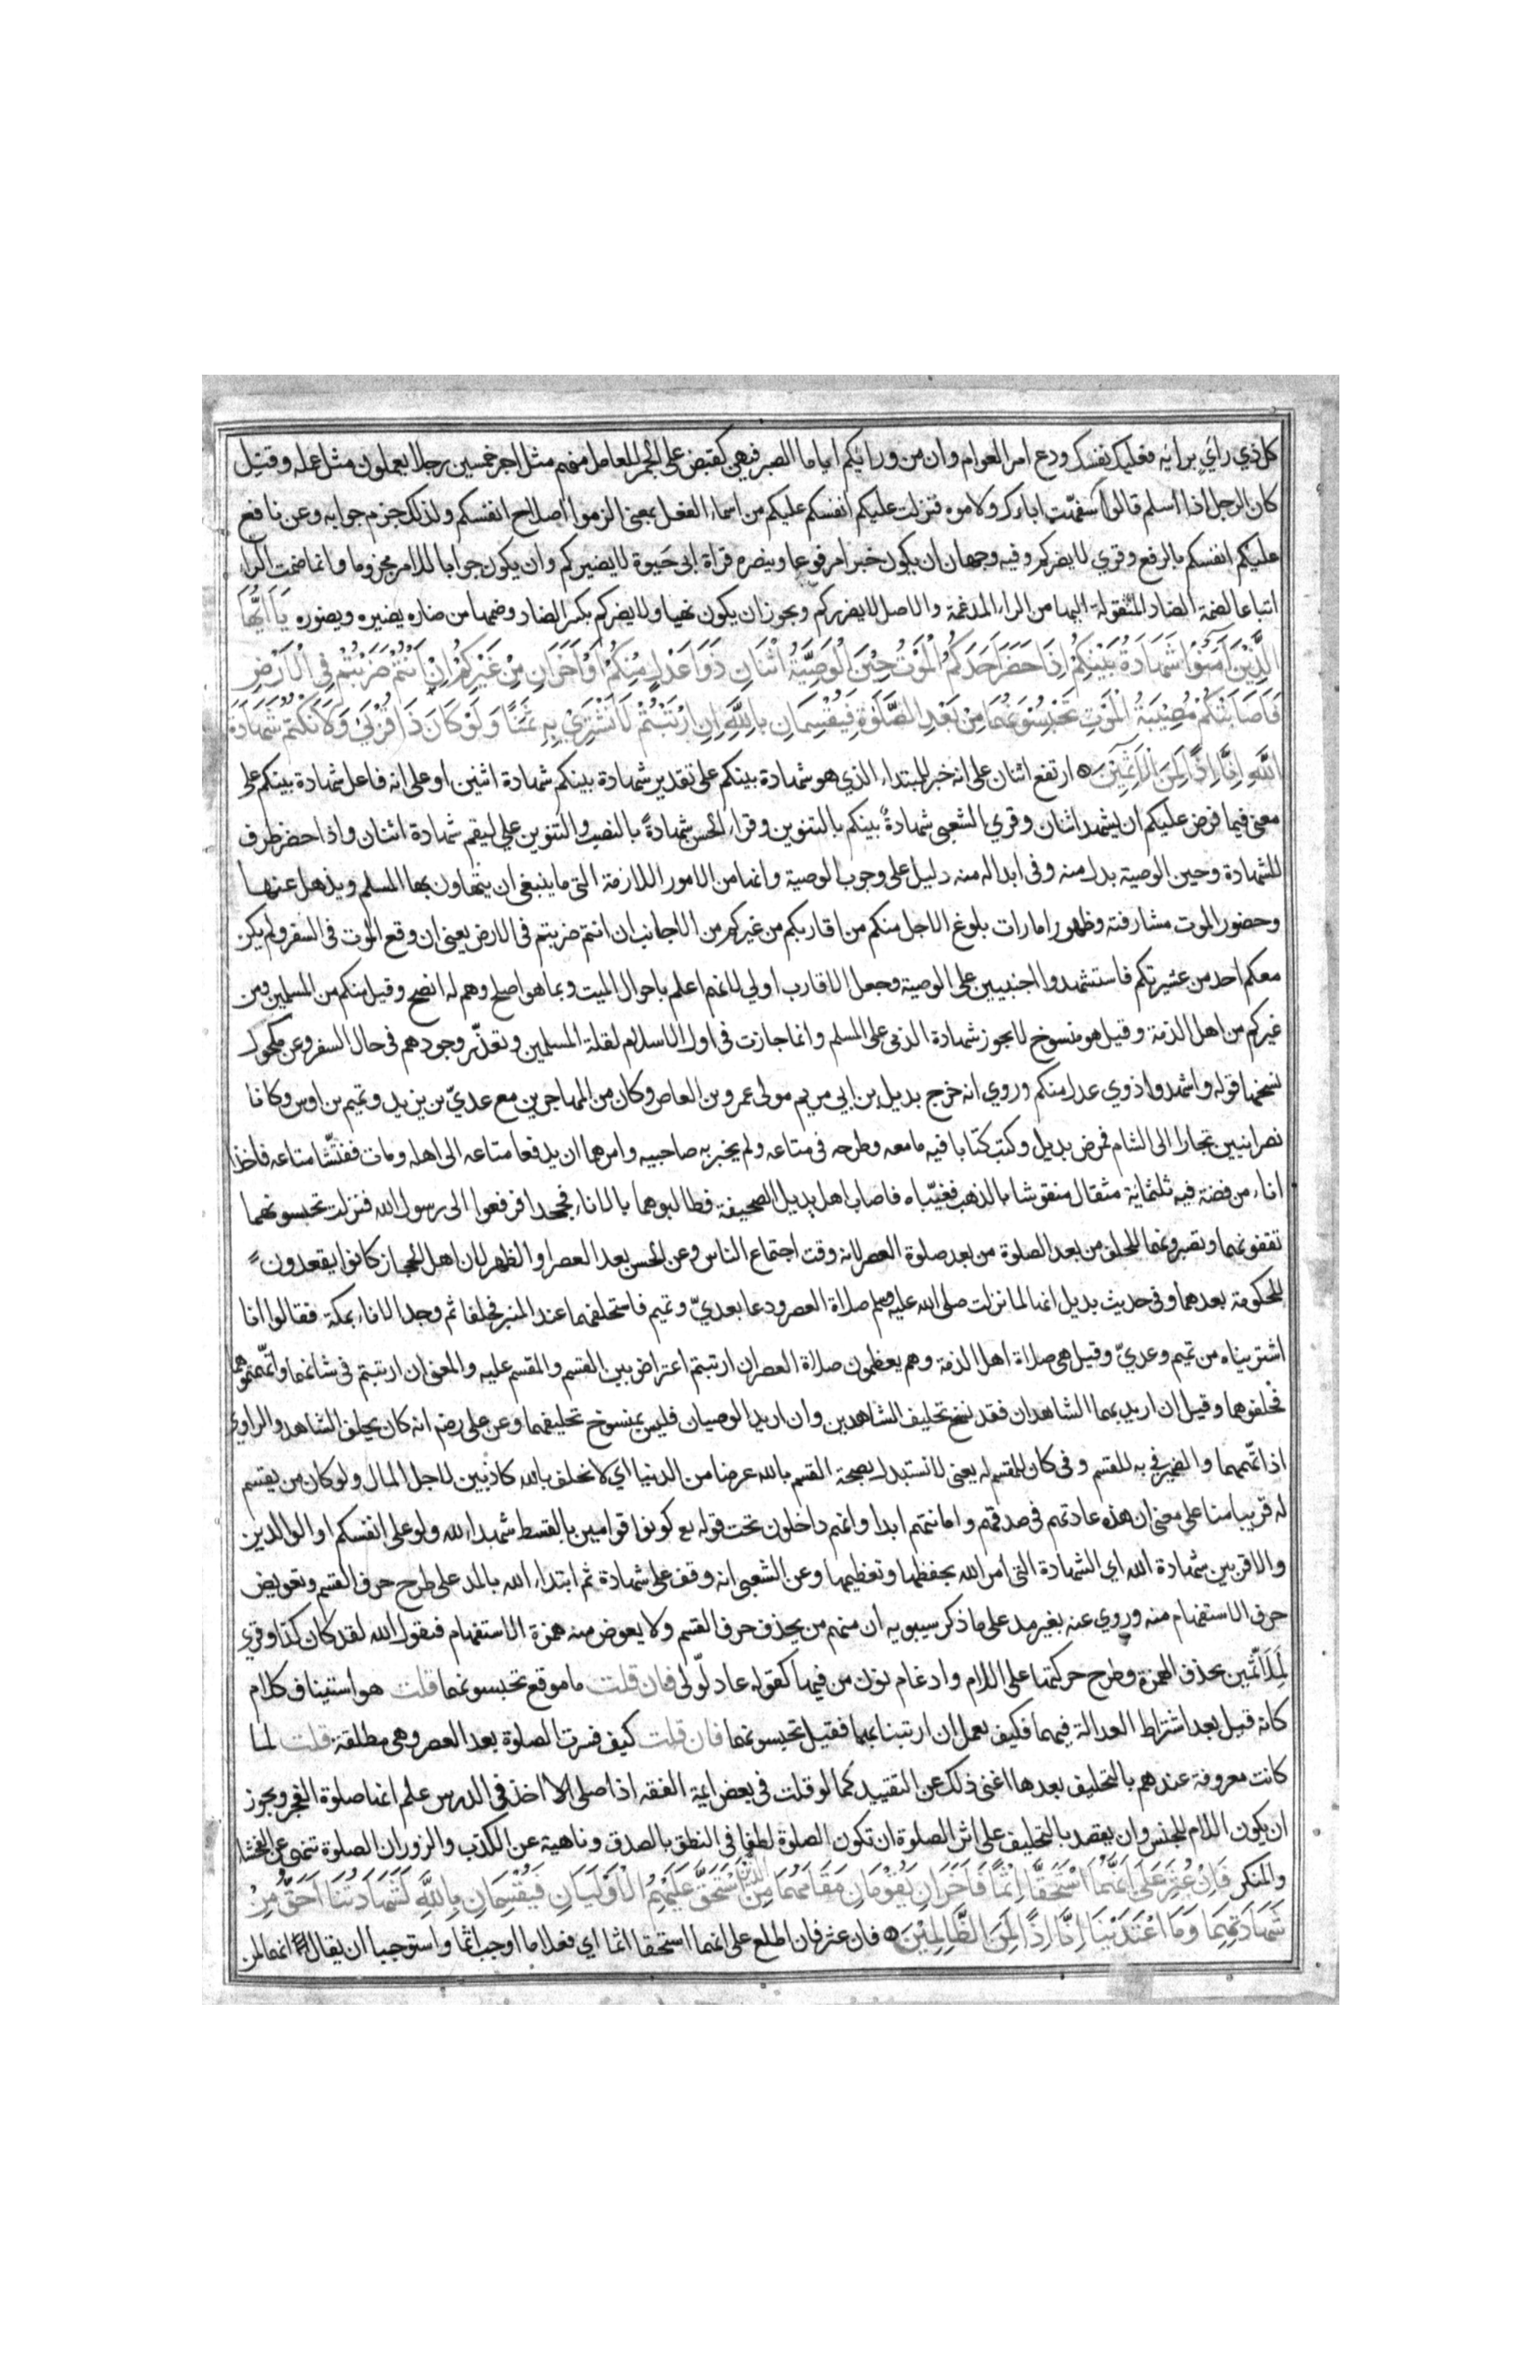 كل ذي رأي برأيه فعليك نفسك ودع امر العوام وان من ورائكم اياما الصبر فيهن كقبض على الجمر للعامل منهم مثل اجر خمسين رجلا يعملون مثل عمله وقيل
كان الرجل اذا اسلم قالوا له سفهت اباءك ولاموه فنزلت عليكم انفسكم عليكم من اسماء الفعل بمعنى الزموا اصلاح انفسكم ولذلك جزم جوابه وعن نافع
عليكم انفسكم بالرفع وقري لا يضركم وفيه وجهان ان يكون خبرا مرفوعا وينصره قراة ابى حيوة لا يضيركم وان يكون جوابا للامر مجزوما وانما ضمت الراء
اتباعا لضمة الضاد المنقولة اليها من الراء المدغمة والاصل لا يضرركم ويجوز ان يكون نهيا ولا يضركم بكسر الضاد وضمها من ضاره يضيره ويضوره يَا اَيُّهَا
الَّذِيْنَ آمَنُوْا شَهَادَةُ بَيْنِكُمْ اِذَا حَضَرَ اَحَدَكُمُ الْمَوْتُ حِيْنَ الْوَصِيَّةِ اثْنَانِ ذَوَا عَدْلٍ مِنْكُمْ اَوْ آخَرَانِ مِنْ غَيْرِكُمْ اِنْ اَنْتُمْ ضَرَبْتُمْ فِي الْاَرْضِ
فَاَصَابَتْكُمْ مُصِيْبَةُ الْمَوْتِ تَحْبِسُوْنَهُمَا مِنْ بَعْدِ الصَّلٰوةِ فَيُقْسِمَانِ بِاللّٰهِ اِنِ ارْتَبْتُمْ لَا نَشْتَرِيْ بِهِ ثَمَنًا وَلَوْ كَانَ ذَا قُرْبٰى وَلَا نَكْتُمُ شَهَادَةَ
اللّٰهِ اِنَّا اِذًا لَمِنَ الْآثِمِيْنَ ه ارتفع اثنان على انه خبر للمبتداء الذي هو شهادة بينكم على تقدير شهادة بينكم شهادة اثنين او على انه فاعل شهادة بينكم على
معنى فيما فرض عليكم ان يشهد اثنان وقري الشعبى شهادةٌ بينكم بالتنوين وقراء الحسن شهادةً بالنصب والتنوين على ليقم شهادة اثنان واذا حضر ظرف
للشهادة وحين الوصية بدل منه وفى ابداله منه دليل على وجوب الوصية وانها من الامور اللازمة التى ما ينبغى ان يتهاون بها المسلم ويذهل عنها
وحضور الموت مشارفته وظهور امارات بلوغ الاجل منكم من اقاربكم من غيركم من الاجانب ان انتم ضربتم فى الارض يعنى ان وقع الموت فى السفر ولم يكن
معكم احد من عشيرتكم فاستشهدوا اجنبيين على الوصية وجعل الاقارب اولى لانهم اعلم باحوال الميت وبما هو اصلح وهم له انصح وقيل منكم من المسلمين ومن
غيركم من اهل الذمة وقيل هو منسوخ لا يجوز شهادة الذمى على المسلم وانما جازت فى اول الاسلام لقلة المسلمين وتعذّر وجودهم فى حال السفر وعن مكحول
نسخها قوله واشهدوا ذوي عدل منكم وروي انه خرج بديل بن ابي مريم مولى عمرو بن العاص وكان من المهاجرين مع عديّ بن يزيد وتميم بن اوس وكانا
نصرانيين تجارا الى الشام فمرض بديل وكتب كتابا فيه ما معه وطرحه فى متاعه ولم يخبر به صاحبيه وامرهما ان يدفعا متاعه الى اهله ومات ففتّشا متاعه فاخذا
اناء من فضة فيه ثلثمائة مثقال منقوشا بالذهب فغيّباه فاصاب اهل بديل الصحيفة فطالبوهما بالاناء فجحدا فرفعوا الى رسول الله فنزلت تحبسونهما
تقفونهما وتصبرونهما للحلف من بعد الصلوة من بعد صلوة العصر لانه وقت اجتماع الناس وعن الحسن بعد العصر او الظهر لان اهل الحجاز كانوا يقعدون
للحكومة بعدهما وفى حديث بديل انها لما نزلت صلى الله عليه وسلم صلاة العصر ودعا بعديّ وتميم فاستحلفهما عند المنبر فحلفا ثم وجد الاناء بمكة فقالوا انا
اشتريناه من تميم وعديّ وقيل هى صلاة اهل الذمة وهم يعظمون صلاة العصر ان ارتبتم اعتراض بين القسم والمقسم عليه والمعنى ان ارتبتم فى شانهما واتّهمتموهما
فحلفوهما وقيل ان اريد بهما الشاهدان فقد نسخ تحليف الشاهدين وان اريد الوصيان فليس بمنسوخ تحليفهما وعن على رضه انه كان يحلف الشاهد والراوي
اذا اتّهمهما والضمير فى به للقسم وفى كان للمقسم له يعنى لا نستبدل بصحة القسم بالله عرضا من الدنيا اي لا نحلف بالله كاذبين لاجل المال ولو كان من يقسم
له قريبا منا على معنى ان هذه عادتهم فى صدقهم وامانتهم ابدا وانهم داخلون تحت قوله تع كونوا قوامين بالقسط شهداء لله ولو على انفسكم او الوالدين
والاقربين شهادة الله اي الشهادة التى امر الله بحفظها وتعظيمها وعن الشعبى انه وقف على شهادة ثم ابتداء الله بالمد على طرح حرف القسم وتعويض
حرف الاستفهام منه وروي عنه بغير مد على ما ذكر سيبويه ان منهم من يحذف حرف القسم ولا يعوض منه همزة الاستفهام فنقول الله لقد كان كذا وقري
لَمِلَاثِمين بحذف الهمزة وطرح حركتها على اللام وادغام نون من فيها كقوله عاد لّولى فان قلت ما موقع تحبسونهما قلت هو استيناف كلام
كانه قيل بعد اشتراط العدالة فيهما فكيف يعمل ان ارتبنا بهما فقيل تحبسونهما فان قلت كيف فسرت الصلوة بعد العصر وهى مطلقة قلت لما
كانت معروفة عندهم بالتحليف بعدها اغنى ذلك عن التقييد كما لو قلت فى بعض ايمة الفقه اذا صلى الا اخذ فى الدرس علم انها صلوة الفجر ويجوز
ان يكون اللام للجنس وان يقصد بالتحليف على اثر الصلوة ان تكون الصلوة لطفا فى النطق بالصدق وناهية عن الكذب والزور ان الصلوة تنهى عن الفحشاء
والمنكر فَاِنْ عُثِرَ عَلٰى اَنَّهُمَا اسْتَحَقَّا اِثْمًا فَآخَرَانِ يَقُوْمَانِ مَقَامَهُمَا مِنَ الَّذِيْنَ اسْتَحَقَّ عَلَيْهِمُ الْاَوْلَيَانِ فَيُقْسِمَانِ بِاللّٰهِ لَشَهَادَتُنَا اَحَقُّ مِنْ
شَهَادَتِهِمَا وَمَا اعْتَدَيْنَا اِنَّا اِذًا لَمِنَ الظَّالِمِيْنَ ه فان عثر فان اطلع على انهما استحقا اثما اي فعلا ما اوجب اثما واستوجبا ان يقال انهما لمن